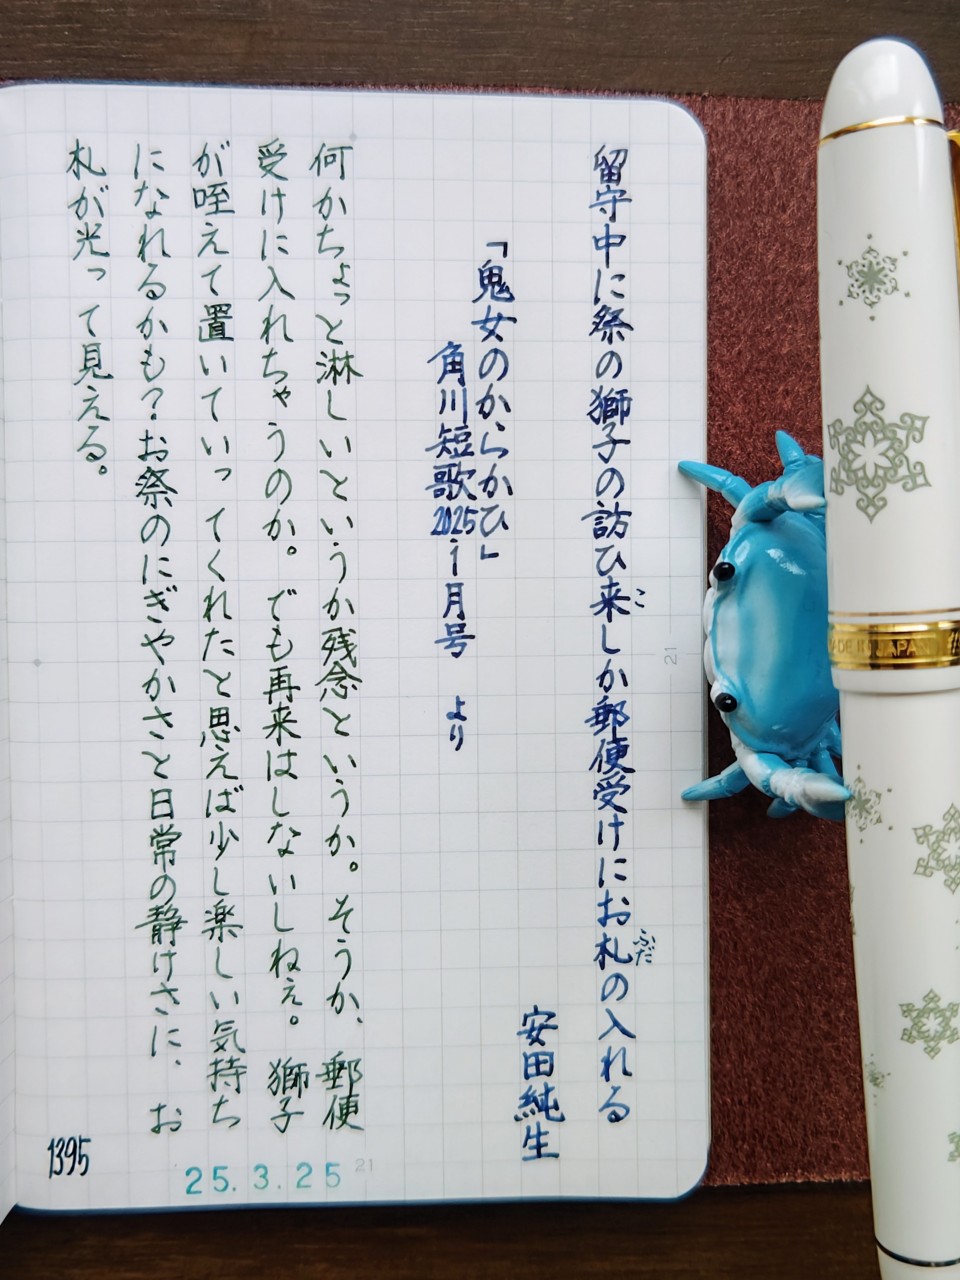 留守中に祭の獅子の訪ひ来しか郵便受けにお札の入れる
こ
ふだ
安田純生
「鬼女のからかひ」
角川短歌2025.1月号 より
何かちょっと淋しいというか残念というか。そうか、郵便
受けに入れちゃうのか。でも再来はしないしねぇ。獅子
が咥えて置いていってくれたと思えば少し楽しい気持ち
になれるかも?お祭のにぎやかさと日常の静けさに、お
札が光って見える。
1395
25.3.25
21
21